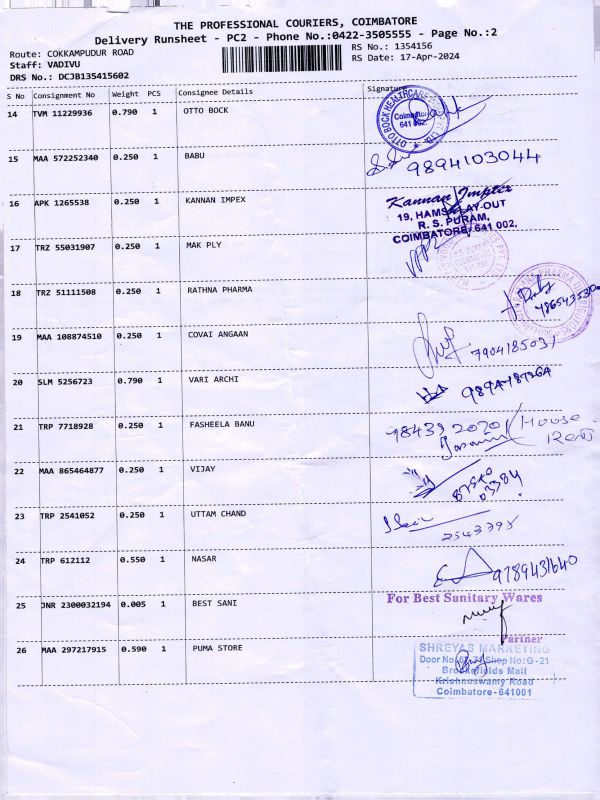 THE PROFESSIONAL COURIERS, COIMBATORE
Delivery Runsheet - PC2 - Phone No.:0422-3505555 - Page No.:2
Route: COKKAMPUDUR ROAD
RS No.: 1354156
Staff: VADIVU
RS Date: 17-Apr-2024
DRS No.: DCJB135415602
S No Consignment No Weight PCS Consignee Details Signature
14 TVM 11229936 0.790 1 OTTO BOCK
OTTO BOCK HEALTHCARE
Coimbatore
641 002.
15 MAA 572252340 0.250 1 BABU
9894103044
16 APK 1265538 0.250 1 KANNAN IMPEX
Kannan Impex
19, HAMSALAY-OUT
R. S. PURAM,
COIMBATORE- 641 002.
17 TRZ 55031907 0.250 1 MAK PLY
18 TRZ 51111508 0.250 1 RATHNA PHARMA
19 MAA 108874510 0.250 1 COVAI ANGAAN
7904185031
20 SLM 5256723 0.790 1 VARI ARCHI
21 TRP 7718928 0.250 1 FASHEELA BANU
House
22 MAA 865464877 0.250 1 VIJAY
23 TRP 2541052 0.250 1 UTTAM CHAND
24 TRP 612112 0.550 1 NASAR
9789431640
25 JNR 2300032194 0.005 1 BEST SANI
For Best Sanitary Wares
Partner
26 MAA 297217915 0.590 1 PUMA STORE
SHREYAS MARKETING
Shop No: G - 21
Brookefields Mall
Krishnaswamy Road
Coimbatore - 641001